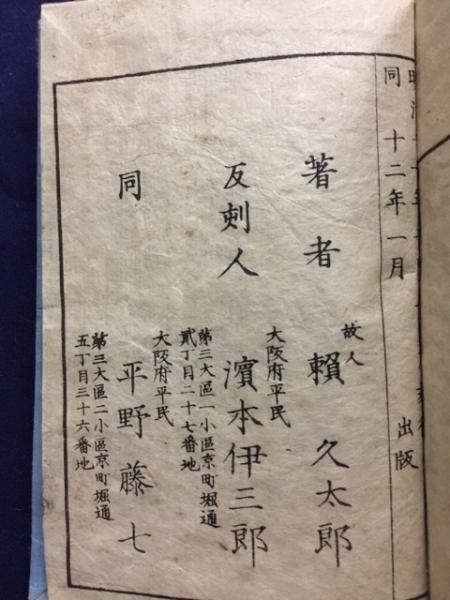 同 十二年一月 出版
著者 故人 頼 久太郎
反刻人 大阪府平民 濱本伊三郎
第三大區一小區京町堀通
貳丁目二十七番地
同 大阪府平民 平野藤七
第三大區二小區京町堀通
五丁目三十六番地